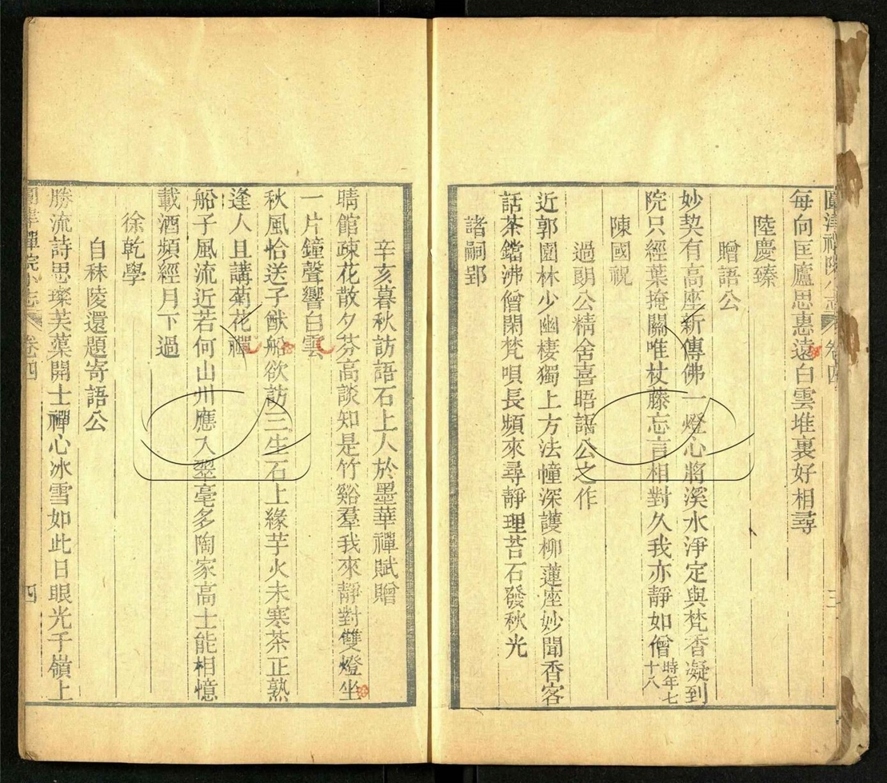 圓津禪院小志 卷四 三
每向匡廬思惠遠白雲堆裏好相尋
陸慶臻
贈語公
妙契有高座新傳佛一燈心將溪水淨定與梵香凝到
院只經葉掩關唯杖藤忘言相對久我亦靜如僧時年七十八
陳國祝
過朗公精舍喜晤語公之作
近郭園林少幽棲獨上方法幢深護柳蓮座妙聞香客
話茶鐺沸僧閑梵唄長頻來尋靜理苔石發秋光
諸嗣郢
辛亥暮秋訪語石上人於墨華禪賦贈
晴館疎花散夕芬高談知是竹谿羣我來靜對雙燈坐
一片鐘聲響白雲
秋風恰送子猷船欲訪三生石上緣芋火未寒茶正熟
逢人且講菊花禪
船子風流近若何山川應入翠毫多陶家高士能相憶
載酒頻經月下過
徐乾學
自秣陵還題寄語公
勝流詩思璨芙蕖開士禪心冰雪如此日眼光千嶺上
圓津禪院小志 卷四 四